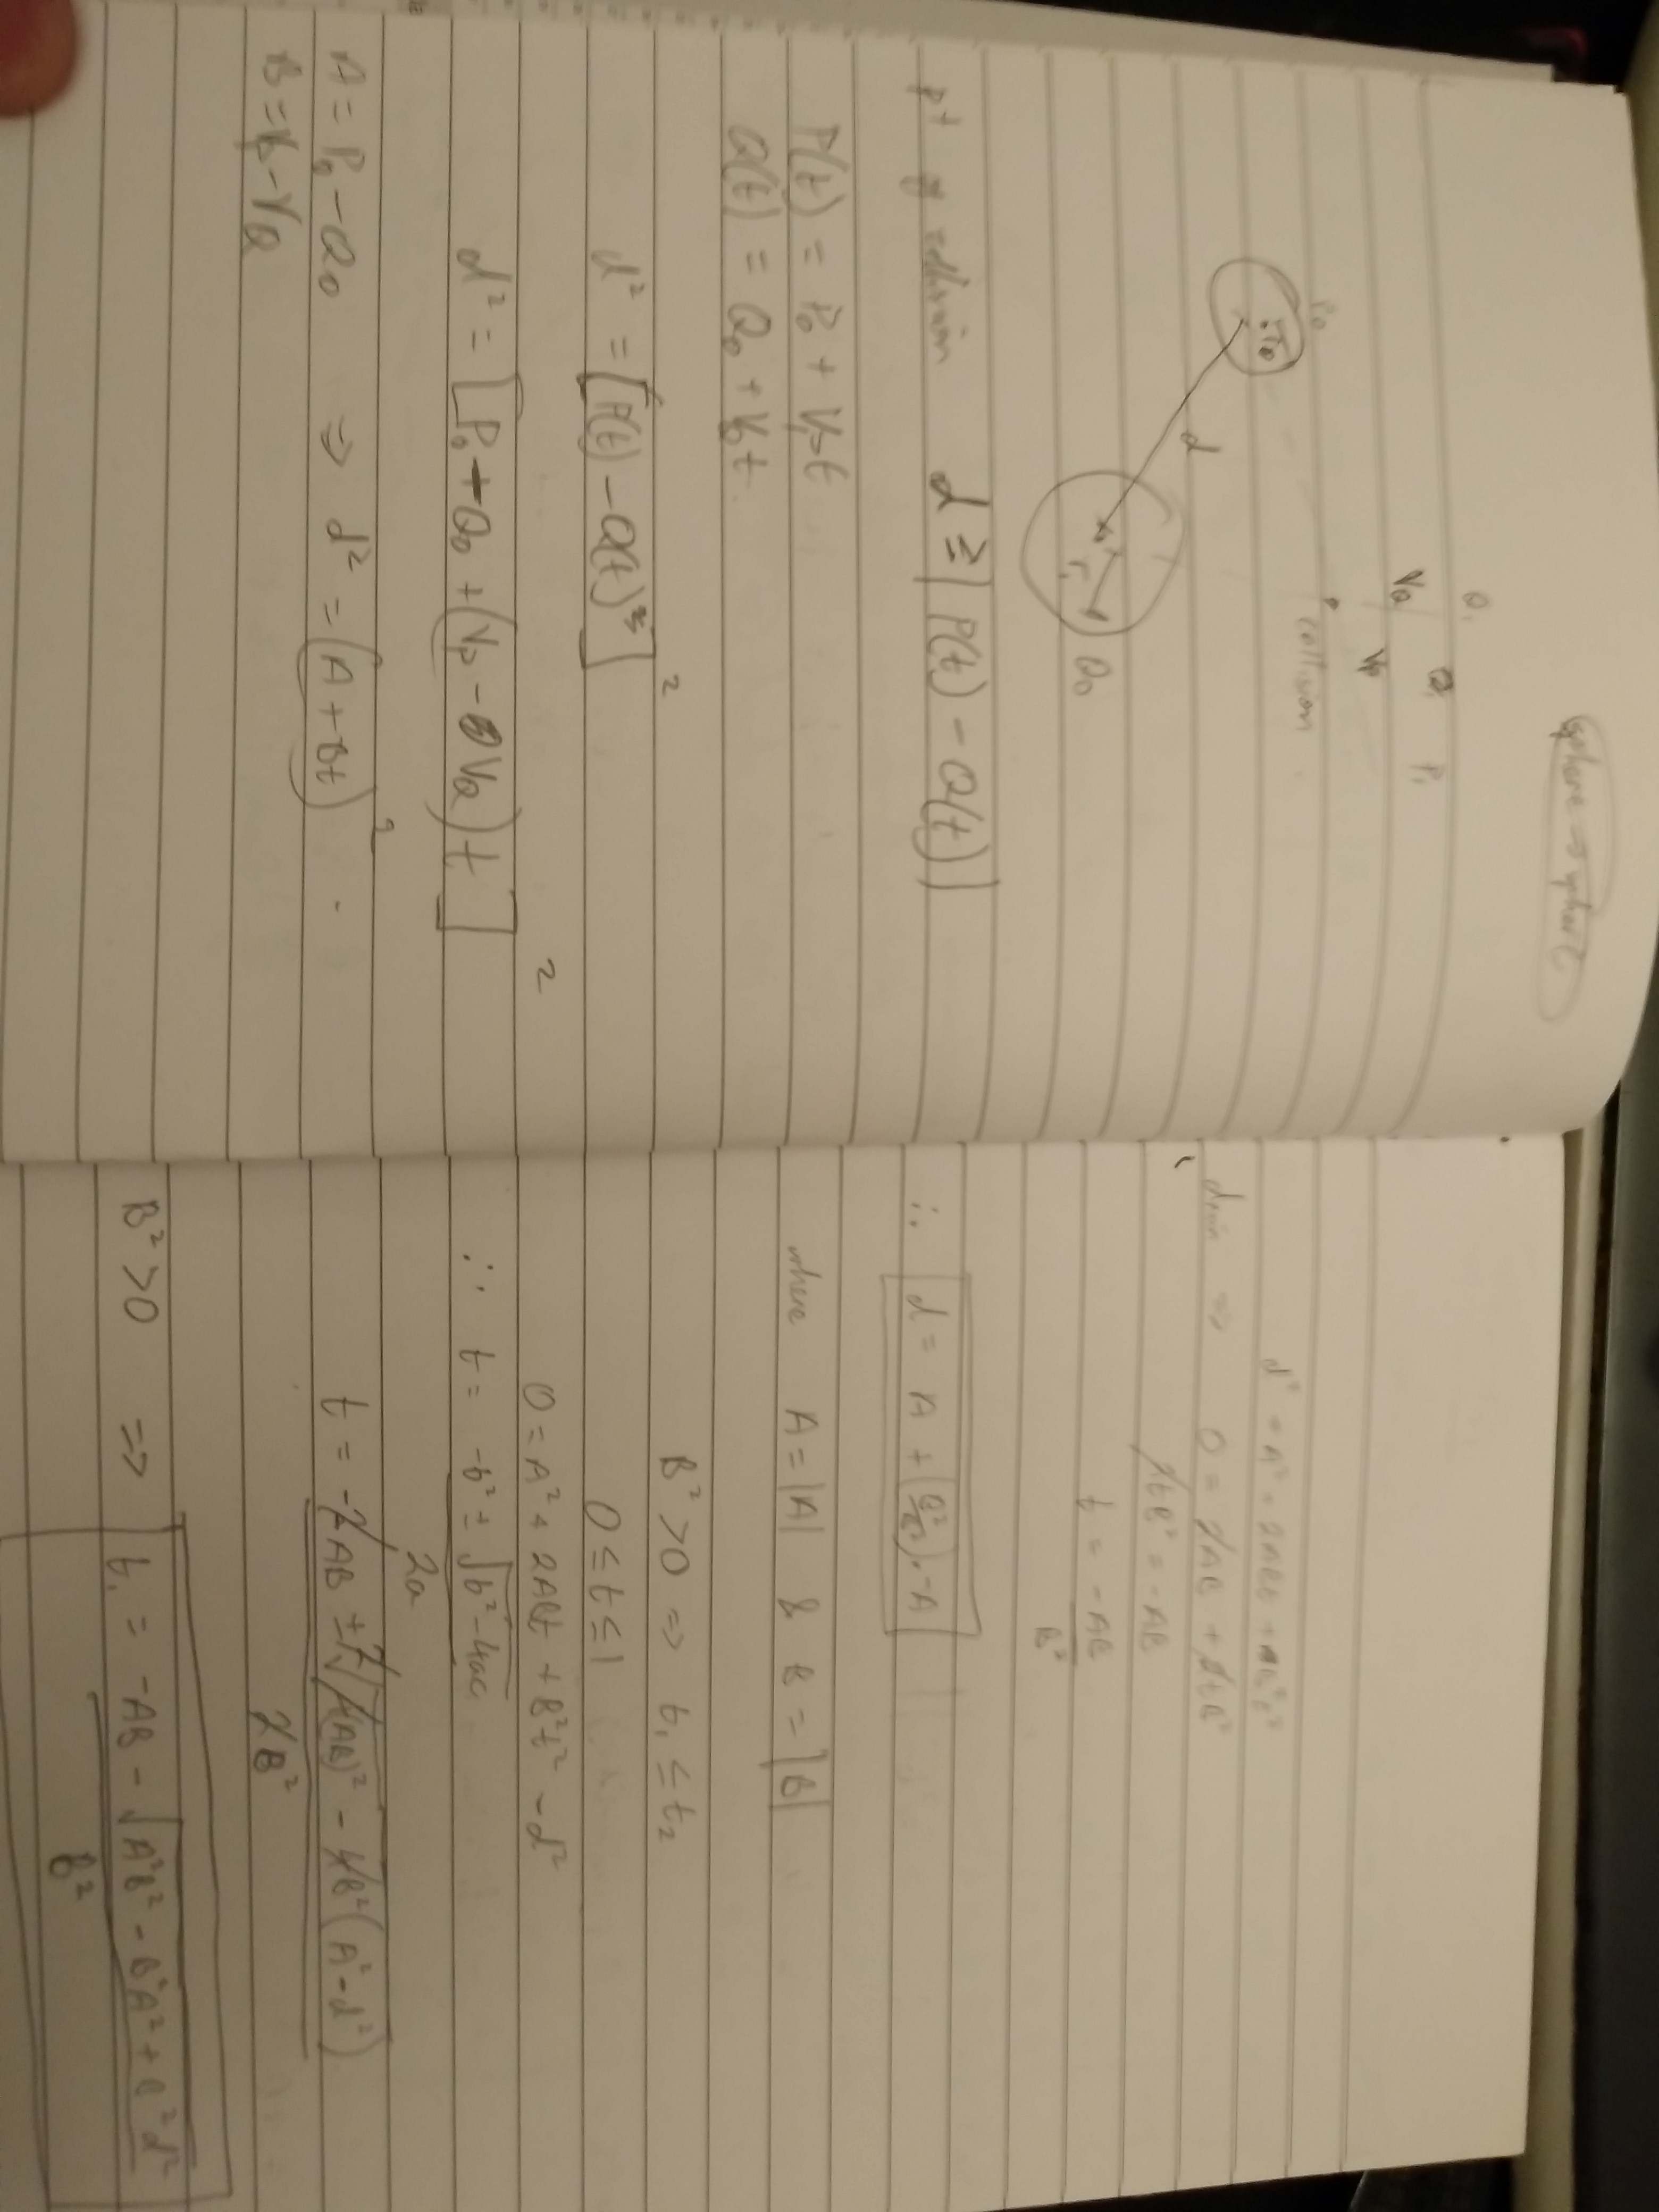 sphere → sphere
Q₁
Q₁
P₁
V_Q
V_P
P₀
collision
r₀
d
r₁
Q₀
pt of collision d ≥ |P(t) - Q(t)|
P(t) = P₀ + V_P t
Q(t) = Q₀ + V_Q t
d² = [P(t) - Q(t)]²
d² = [P₀ - Q₀ + (V_P - V_Q)t]²
A = P₀ - Q₀ ⇒ d² = (A + Bt)²
B = V_P - V_Q
d² = A² + 2ABt + B²t²
dmin ⇒ 0 = 2AB + 2tB²
2tB² = -AB
t = -AB / B²
∴ d = A + ( ).-A
where A = |A| & B = |B|
B² > 0 ⇒ t₁ ≤ t₂
0 ≤ t ≤ 1
0 = A² + 2ABt + B²t² - d²
∴ t = -b² ± √(b² - 4ac) / 2a
t = -2AB ± 2√(4(AB)² - 4B²(A² - d²)) / 2B²
B² > 0 ⇒ t₁ = -AB - √(A²B² - B²A² + B²d²) / B²